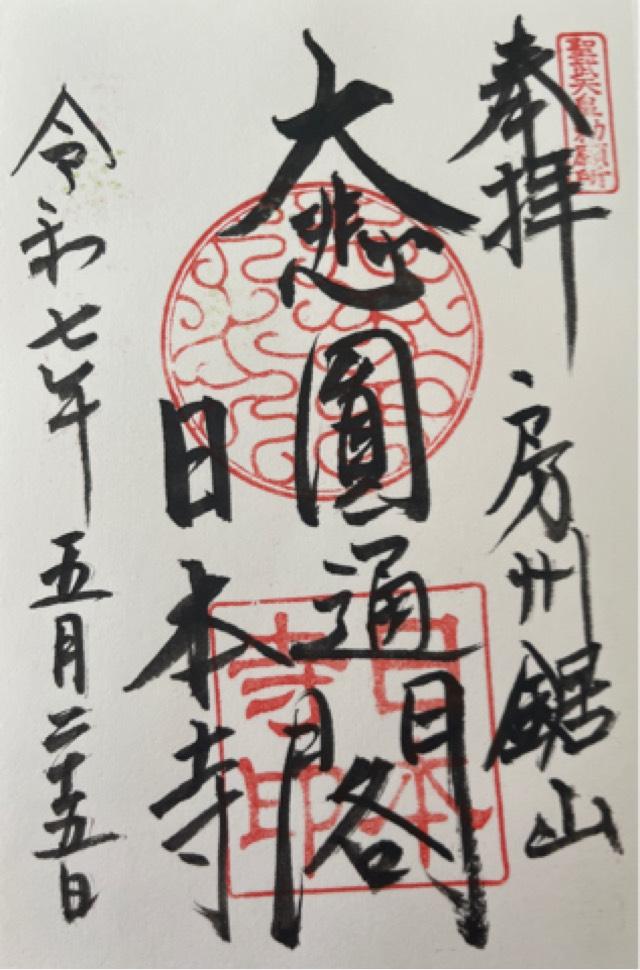 聖武天皇勅願所
奉拝
房州鋸山
大悲圓通閣
日本寺
日本寺印
令和七年五月二十五日